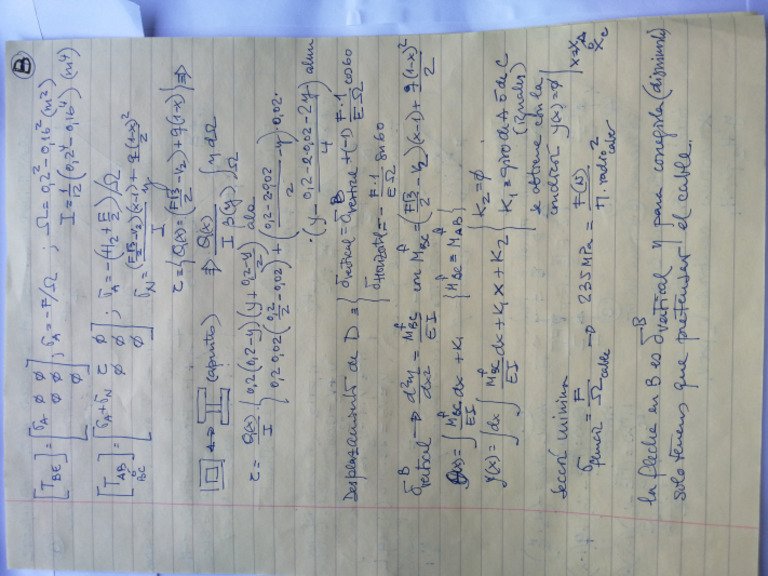 B
[T_BE] = [σ_A ϕ ϕ / ϕ ϕ / ϕ] ; σ_A = -F/Ω ; Ω = 0,2² - 0,16² (m²)
I = 1/12 (0,2⁴ - 0,16⁴) (m⁴)
[T_AB BC] = [σ_A + σ_N τ ϕ / ϕ ϕ / ϕ] ; σ_A = -(H₂ + F/2)/Ω
σ_N = ((F√3/2 - V₂)(x-1) + q(1-x)²/2)/I y
τ = { Q(x) = (F√3/2 - V₂) + q(1-x) } ⇒
(apuntes) ⇒ Q(x)/(I B(y)) ∫_Ω y dΩ
τ = Q(x)/I { 0,2(0,2-y)(y + (0,2-y)/2) ala
0,2·0,02(0,2/2 - 0,02) + ((0,2-2·0,02)/2 - y)·0,02·
·(y - (0,2-2·0,02-2y)/4) alma
Desplazamiento de D = { δvertical = δ^B vertical + (-1) F·1/(E·Ω) cos60
δHorizontal = - F·1/(E·Ω) sen60
δ^B vertical → d²y/dx² = M^f_BC/EI con M^f_BC = (F√3/2 - V₂)(x-1) + q(1-x)²/2
θ(x) = ∫ M^f_BC/EI dx + K₁ { M^f_BC = M^f_AB }
y(x) = ∫dx ∫ M^f_BC/EI dx + K₁x + K₂ { K₂ = ϕ
K₁ = giro de A o de C
(iguales)
se obtiene con la
condición y(x) = ϕ | x=x_A o x_C
Sección mínima
σ_pmax = F/Ω_cable → 235 MPa = F(N)/(π·radio²cable)
la flecha en B es δ^B vertical y para corregirla (disminuirla)
solo tenemos que pretensar el cable.